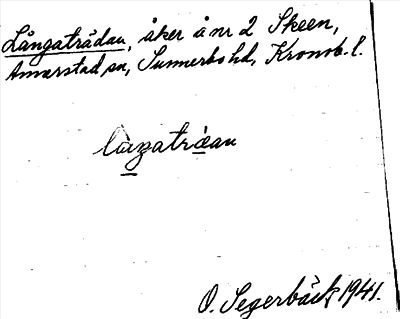 Långatrådan, åker å nr 2 Skeen,
Annerstad sn, Sunnerbo hd, Kronob. l.
làŋatråan
O. Segerbäck 1941.